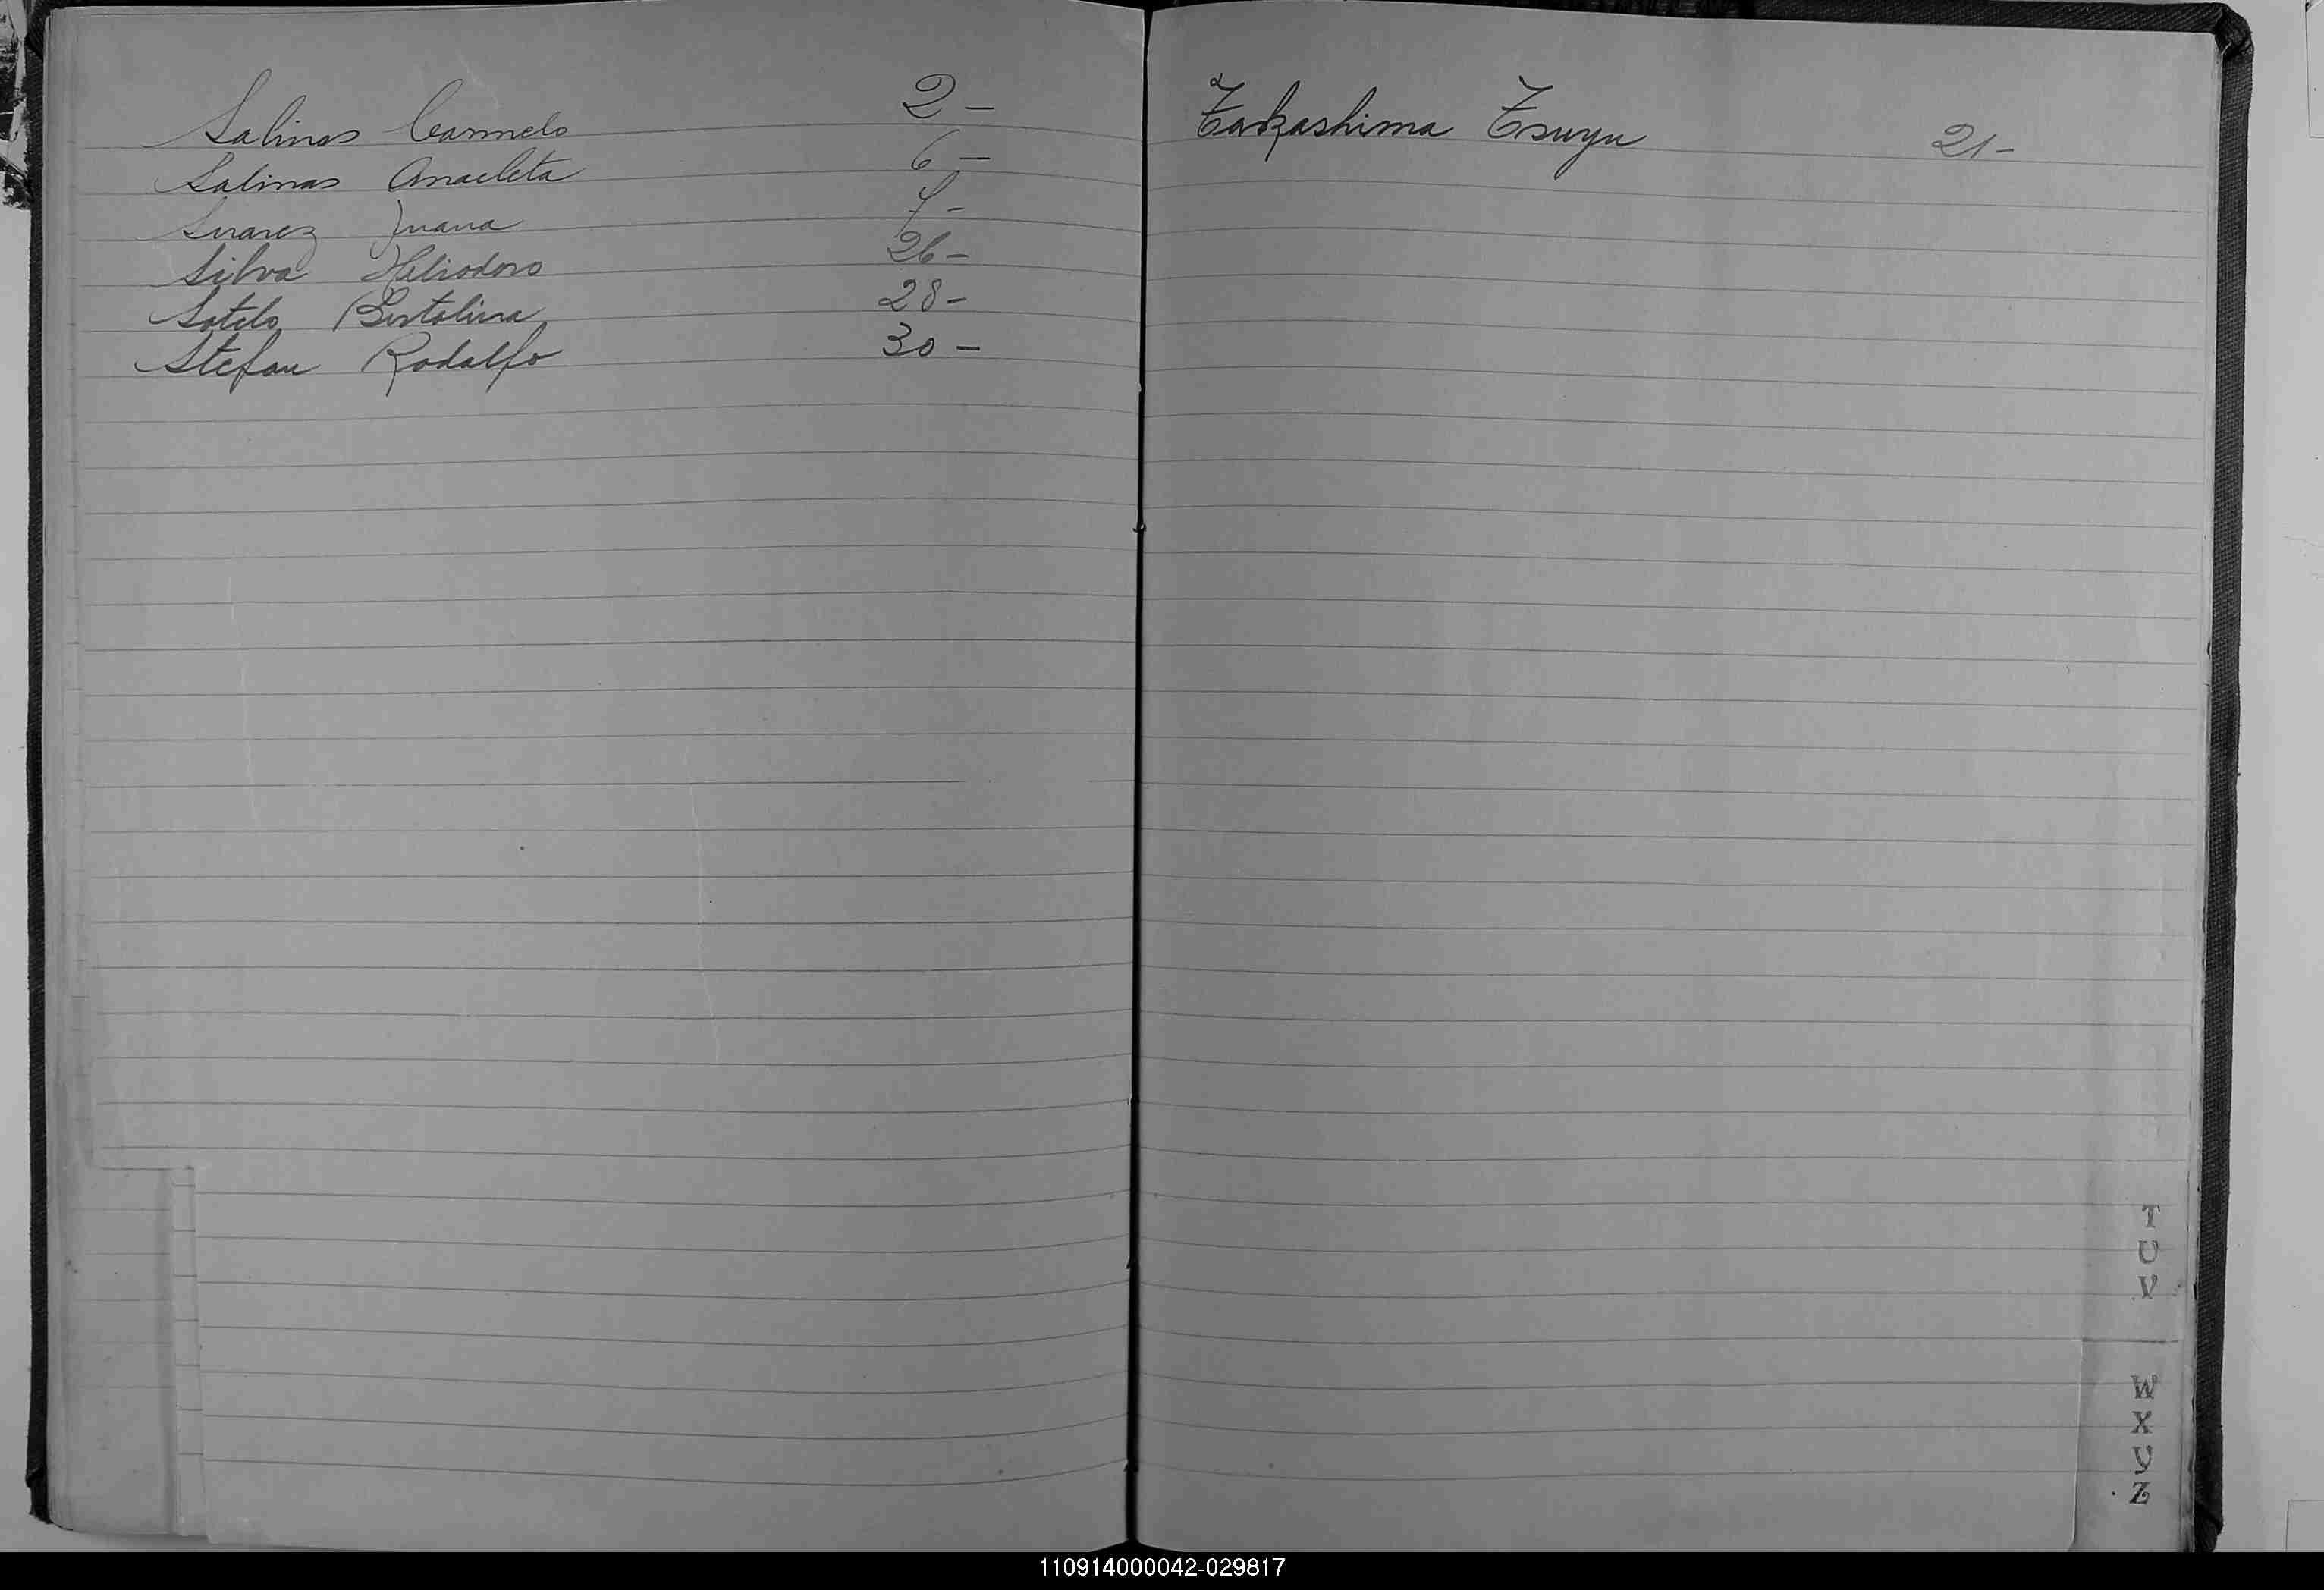 Salinas Carmelo 2-
Salinas Anacleta 6-
Suarez Juana 7-
Silva Heliodoro 26-
Sotelo Bertolina 28-
Stefan Rodolfo 30-
Takashima Tsuyu 21-
T
U
V
W
X
Y
Z
110914000042-029817